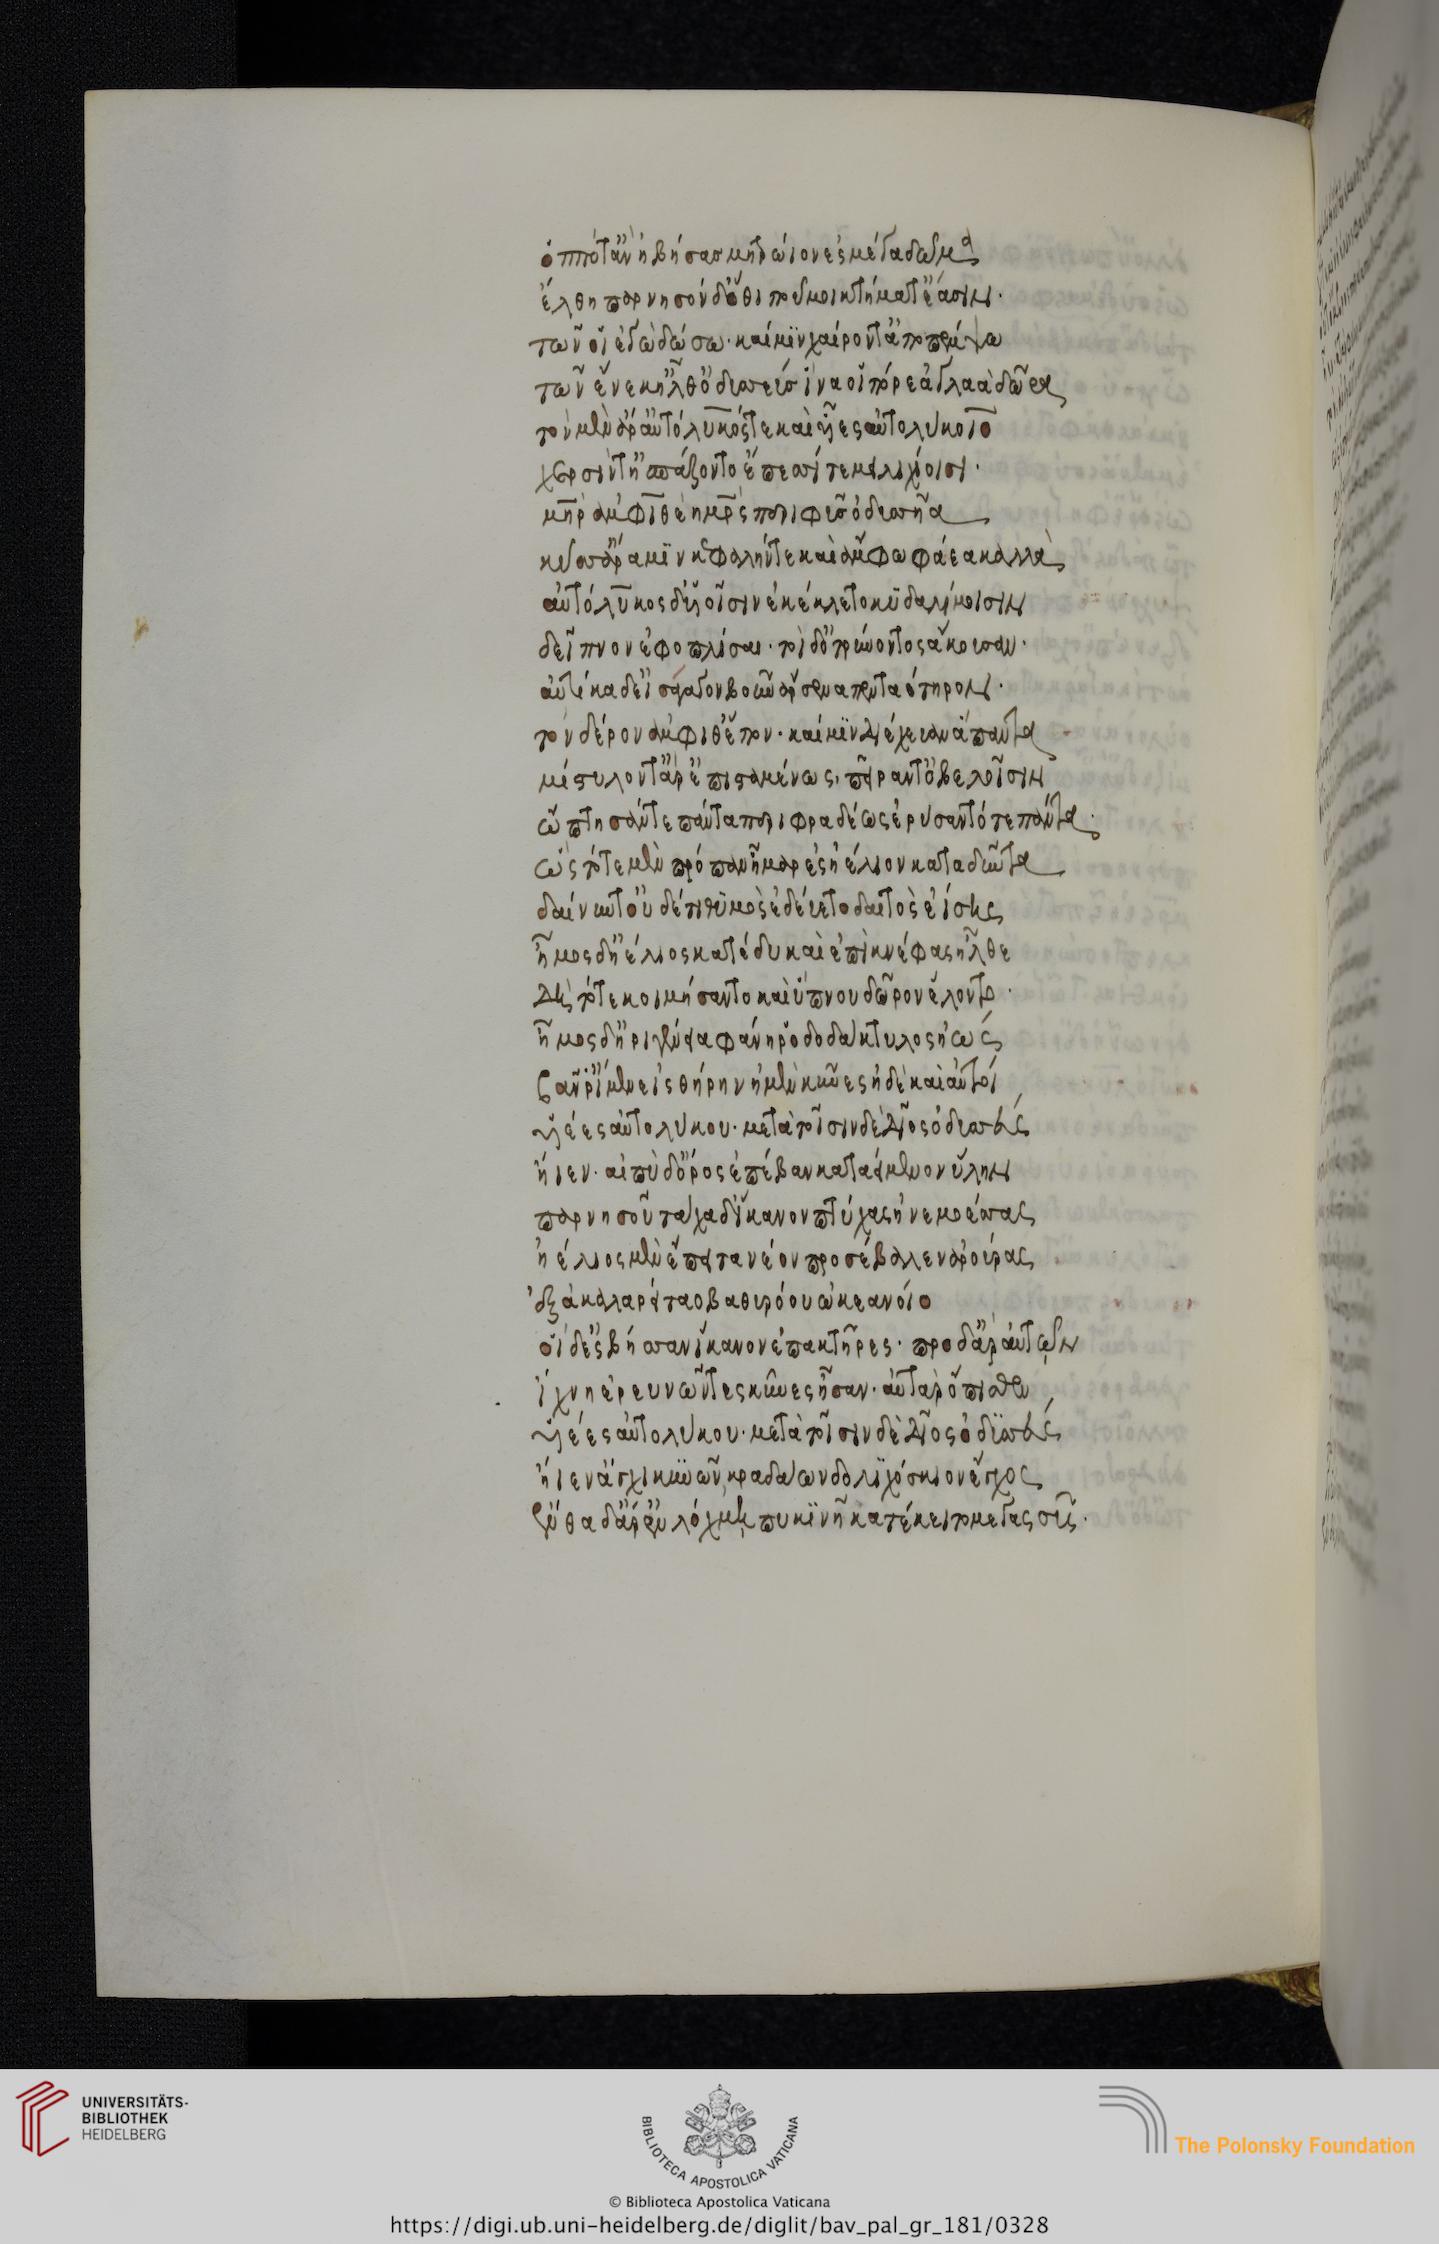 ὁππότ' ἂν ἡβήσας μητρώϊον ἐς μέγα δῶμα
ἔλθη παρνησόνδ' ὅθι πού μοι κτήματ' ἔασιν·
τῶν οἱ ἐγὼ δώσω· καί μιν χαίροντ' ἀποπέμψω
τῶν ἕνεκ' ἦλθ' ὀδυσεὺς ἵνα οἱ πόρε ἀγλαὰ δῶρα
τὸν μὲν ἄρ' αὐτόλυκός τε καὶ υἱέες αὐτολύκοιο
χερσίν τ' ἠσπάζοντο ἔπεσί τε μειλιχίοισι·
μήτηρ ἀμφιθέη μητρὸς περιφῦσ' ὀδυσῆα
κύσσ' ἄρα μιν κεφαλήν τε καὶ ἄμφω φάεα καλὰ
αὐτόλυκος δ' υἱοῖσιν ἐκέκλετο κυδαλίμοισιν
δεῖπνον ἐφοπλίσαι· τοὶ δ' ὀτρύνοντος ἄκουσαν·
αὐτίκα δ' εἰσάγαγον βοῦν ἄρσενα πενταέτηρον·
τὸν δέρον ἀμφί θ' ἕπον· καί μιν διέχευαν ἅπαντα
μίστυλόν τ' ἄρ' ἐπισταμένως, πεῖράν τ' ὀβελοῖσιν
ὤπτησάν τε πάντα περιφραδέως ἐρύσαντό τε πάντα·
ὣς τότε μὲν πρόπαν ἦμαρ ἐς ἠέλιον καταδύντα
δαίνυντ' οὐδέ τι θυμὸς ἐδεύετο δαιτὸς ἐΐσης
ἦμος δ' ἠέλιος κατέδυ καὶ ἐπὶ κνέφας ἦλθε
δὴ τότε κοιμήσαντο καὶ ὕπνου δῶρον ἕλοντο·
ἦμος δ' ἠριγένεια φάνη ῥοδοδάκτυλος ἠώς
βάν ῥ' ἴμεν εἰς θήρην ἠμὲν κύνες ἠδὲ καὶ αὐτοὶ
υἱέες αὐτολύκου· μετὰ τοῖσιν δὲ δῖος ὀδυσσεύς
ἤιεν· αἰπὺ δ' ὄρος ἐπέβαν καταειμένον ὕλην
παρνησοῦ τάχα δ' ἵκανον πτύχας ἠνεμοέσσας
ἠέλιος μὲν ἔπειτα νέον προσέβαλεν ἀρούρας
ἐξ ἀκαλαρείταο βαθυρόου ὠκεανοῖο
οἱ δ' ἐς βήσσαν ἵκανον ἐπακτῆρες· πρὸ δ' ἄρ' αὐτῶν
ἴχνη ἐρευνῶντες κύνες ἤσαν· αὐτὰρ ὄπισθεν
υἱέες αὐτολύκου· μετὰ τοῖσιν δὲ δῖος ὀδυσσεύς
ἤιεν ἄγχι κυνῶν, κραδάων δολιχόσκιον ἔγχος
ἔνθα δ' ἄρ' ἐν λόχμῃ πυκινῇ κατέκειτο μέγας σῦς·
UNIVERSITÄTS-
BIBLIOTHEK
HEIDELBERG
BIBLIOTECA APOSTOLICA VATICANA
The Polonsky Foundation
© Biblioteca Apostolica Vaticana
https://digi.ub.uni-heidelberg.de/diglit/bav_pal_gr_181/0328